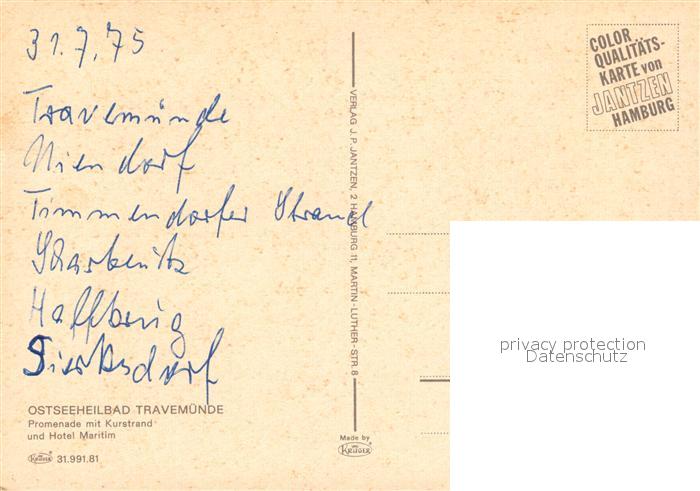 31.7.75
Travemünde
Niendorf
Timmendorfer Strand
Scharbeutz
Haffkrug
Sierksdorf
OSTSEEHEILBAD TRAVEMÜNDE
Promenade mit Kurstrand
und Hotel Maritim
KRÜGER 31.991.81
VERLAG J. P. JANTZEN, 2 HAMBURG 11, MARTIN-LUTHER-STR. 8
Made by
KRÜGER
COLOR
QUALITÄTS-
KARTE von
JANTZEN
HAMBURG
privacy protection
Datenschutz